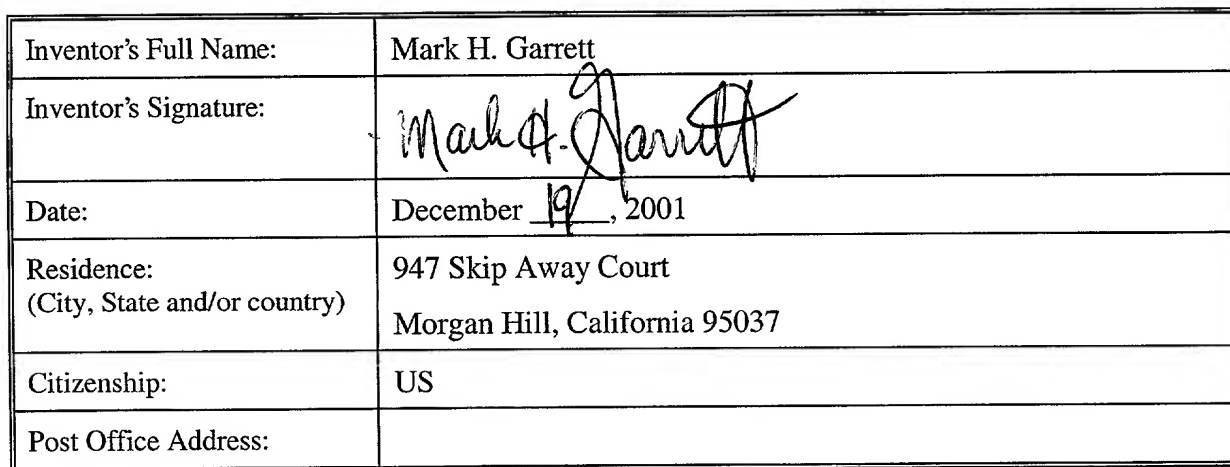 Inventor's Full Name: Mark H. Garrett
Inventor's Signature: Mark H. Garrett
Date: December 19, 2001
Residence: 947 Skip Away Court
(City, State and/or country) Morgan Hill, California 95037
Citizenship: US
Post Office Address: